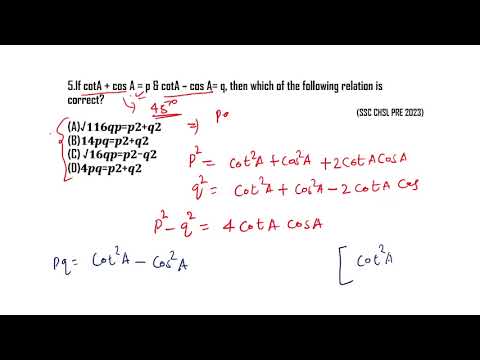 5.If cotA + cos A = p & cotA – cos A= q, then which of the following relation is
correct?
(SSC CHSL PRE 2023)
45°
(A)√116qp=p2+q2
(B)14pq=p2+q2
(C) √16qp=p2–q2
(D)4pq=p2+q2
⇒) pq
p² = cot²A + cos²A + 2 cotA cosA
q² = cot²A + cos²A – 2 cotA cos
p² – q² = 4 cotA cosA
pq = cot²A – cos²A
[ cot²A